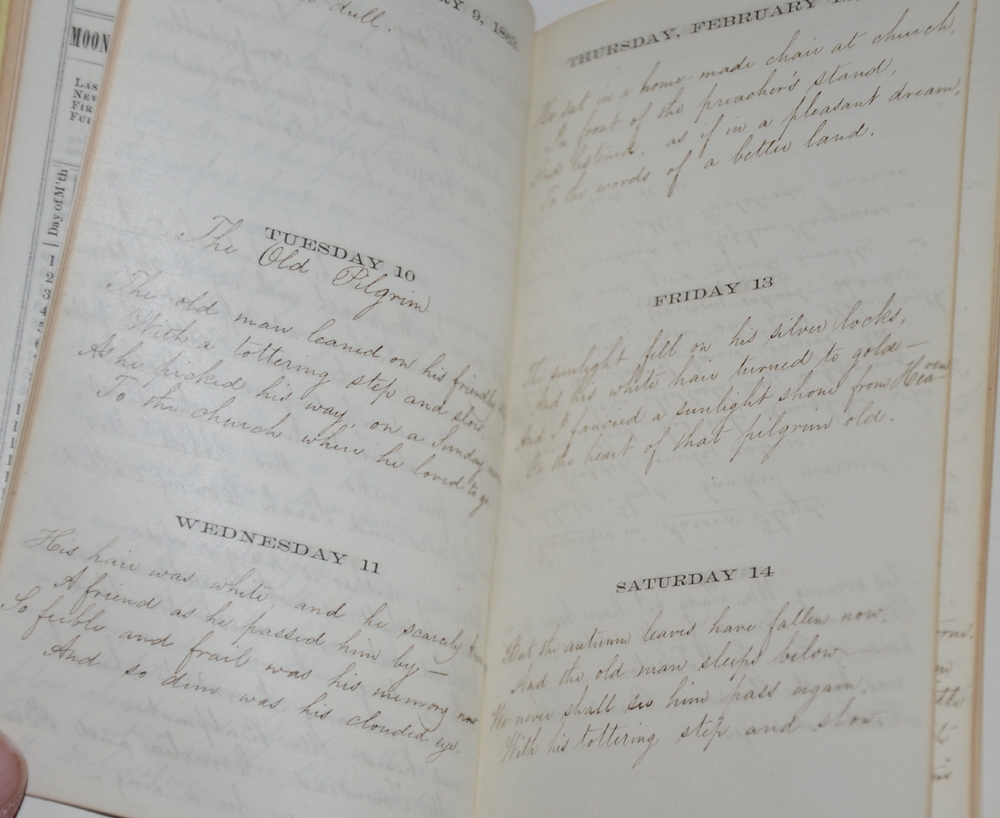 MOON
Day of M'th
1
2
3
4
dull.
Y 9, 186
TUESDAY 10
The Old Pilgrim
The old man leaned on his friendly
With a tottering step and slow,
As he picked his way, on a Sunday
To the church where he loved to go
WEDNESDAY 11
His hair was white, and he scarcely
A friend as he passed him by—
So feeble and frail was his memory now
And so dim was his clouded eye.
THURSDAY, FEBRUARY
He sat in a home-made chair at church,
In front of the preacher's stand,
And listened, as if in a pleasant dream,
To the words of a better land.
FRIDAY 13
The sunlight fell on his silver locks,
And his white hair turned to gold—
And I fancied a sunlight shone from Heaven
On the heart of that pilgrim old.
SATURDAY 14
But the autumn leaves have fallen now,
And the old man sleeps below—
We never shall see him pass again,
With his tottering step and slow.